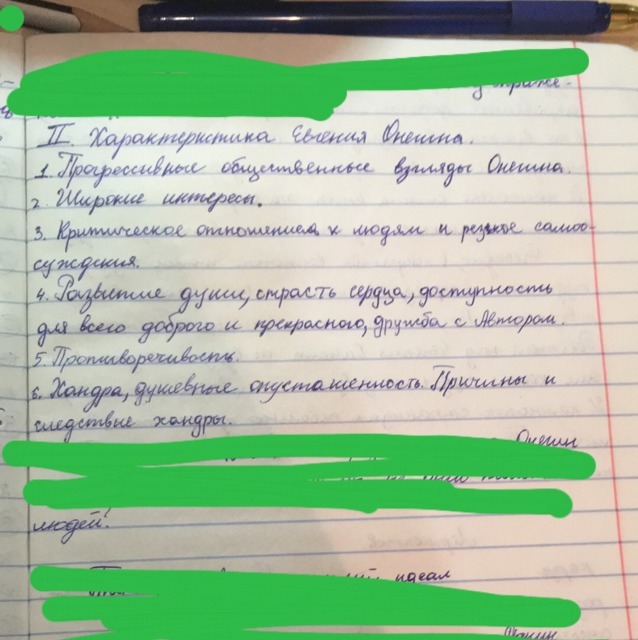 II. Характеристика Евгения Онегина.
1. Прогрессивные общественные взгляды Онегина.
2. Широкие интересы.
3. Критическое отношением к людям и резкое самоо-
суждения.
4. Развитие души, страсть сердца, доступность
для всего доброго и прекрасного, дружба с Автором.
5. Противоречивость.
6. Хандра, душевные опусташенность. Причины и
следствие хандры.
Онегин
людей!
идеал